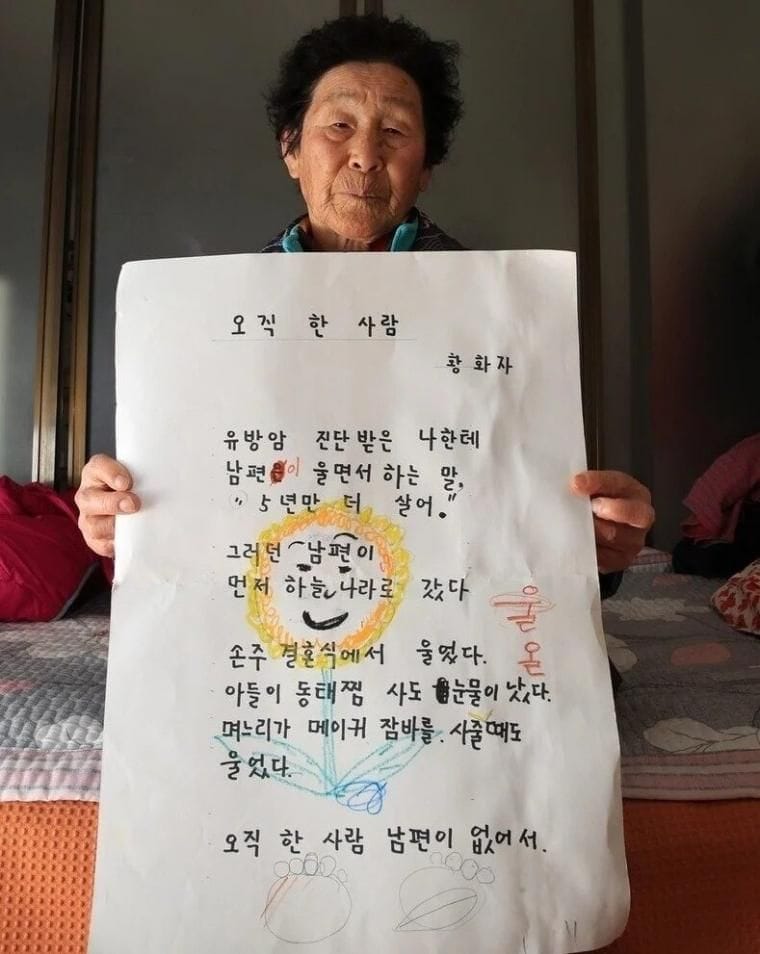 오직 한 사람
황화자
유방암 진단 받은 나한테
남편이 울면서 하는 말,
"5년만 더 살어."
그러던 남편이
먼저 하늘나라로 갔다
손주 결혼식에서 울었다.
아들이 동태찜 사도 눈물이 낫다.
며느리가 메이귀 잠바를 사줄 때도
울었다.
오직 한 사람 남편이 없어서.